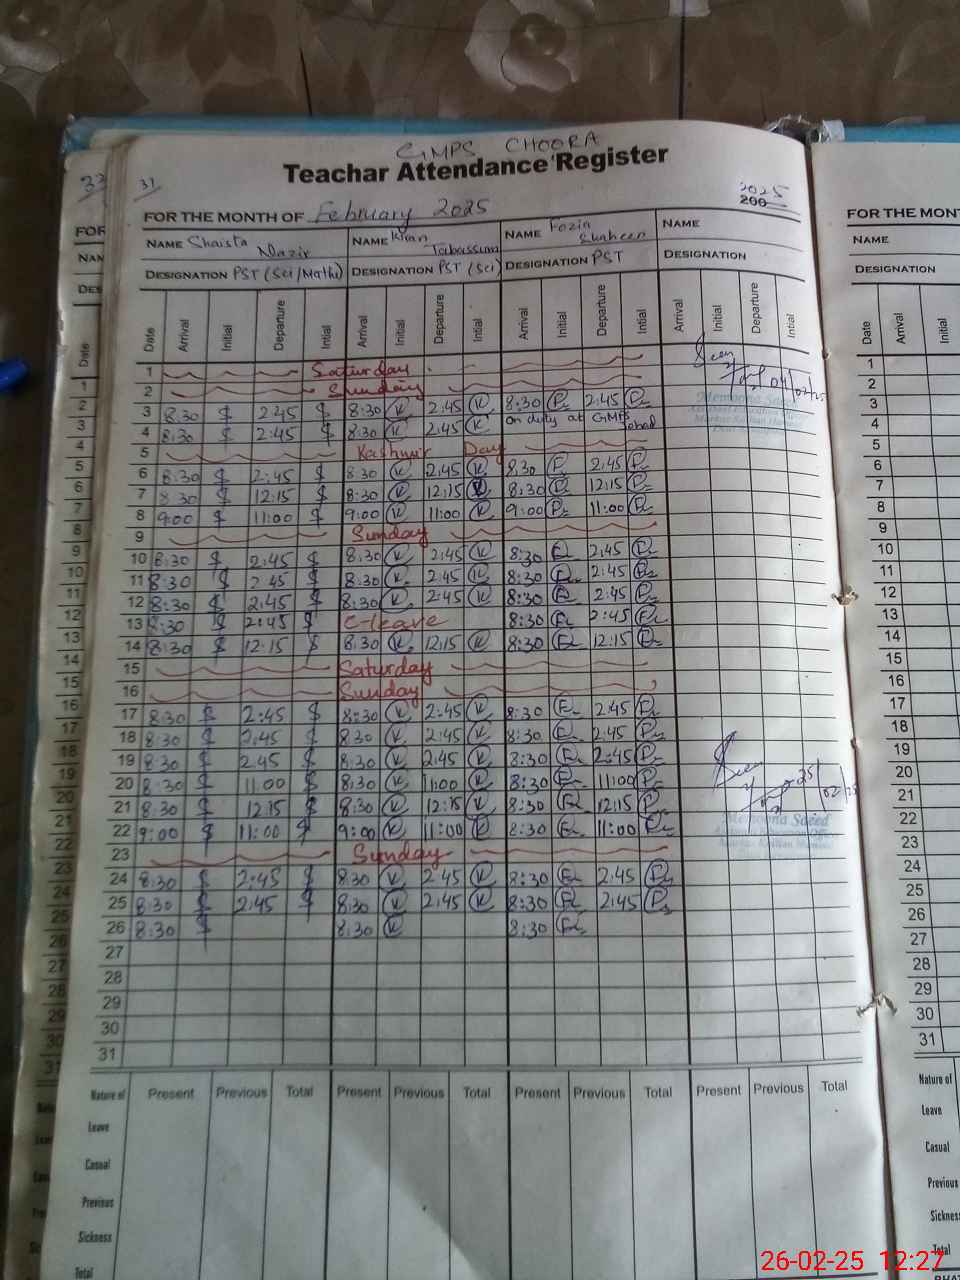 GMPS CHOORA
Teachar Attendance Register
33
31
2025
200
FOR THE MONTH OF February 2025
NAME Shaista Nazir NAME Kiran Tabassum NAME Fozia Shaheen NAME
DESIGNATION PST (Sci/Math) DESIGNATION PST (Sci) DESIGNATION PST DESIGNATION
Date Arrival Initial Departure Intial Arrival Initial Departure Intial Arrival Initial Departure Intial Arrival Initial Departure Intial
1 Saturday
2 Sunday
3 8:30 $ 2:45 $ 8:30 K 2:45 K 8:30 2:45
4 8:30 $ 2:45 $ 8:30 K 2:45 K on duty at GMPS
5 Kashmir Day
6 8:30 $ 2:45 $ 8:30 K 2:45 K 8:30 2:45
7 8:30 $ 12:15 $ 8:30 K 12:15 K 8:30 12:15
8 9:00 $ 11:00 $ 9:00 K 11:00 K 9:00 11:00
9 Sunday
10 8:30 $ 2:45 $ 8:30 K 2:45 K 8:30 2:45
11 8:30 $ 2:45 $ 8:30 K 2:45 K 8:30 2:45
12 8:30 $ 2:45 $ 8:30 K 2:45 K 8:30 2:45
13 8:30 $ 2:45 $ C-leave 8:30 2:45
14 8:30 $ 12:15 $ 8:30 K 12:15 K 8:30 12:15
15 Saturday
16 Sunday
17 8:30 $ 2:45 $ 8:30 K 2:45 K 8:30 2:45
18 8:30 $ 2:45 $ 8:30 K 2:45 K 8:30 2:45
19 8:30 $ 2:45 $ 8:30 K 2:45 K 8:30 2:45
20 8:30 $ 11:00 $ 8:30 K 11:00 K 8:30 11:00
21 8:30 $ 12:15 $ 8:30 K 12:15 K 8:30 12:15
22 9:00 $ 11:00 $ 9:00 K 11:00 K 8:30 11:00
23 Sunday
24 8:30 $ 2:45 $ 8:30 K 2:45 K 8:30 2:45
25 8:30 $ 2:45 $ 8:30 K 2:45 K 8:30 2:45
26 8:30 $ 8:30 K 8:30
27
28
29
30
31
Seen
04/02/25
Memoona Saeed
Seen
25/02/25
Memoona Saeed
Nature of Present Previous Total Present Previous Total Present Previous Total Present Previous Total
Leave
Casual
Previous
Sickness
Total
FOR THE MONT
NAME
DESIGNATION
Date Arrival Initial
1
2
3
4
5
6
7
8
9
10
11
12
13
14
15
16
17
18
19
20
21
22
23
24
25
26
27
28
29
30
31
Nature of Present
Leave
Casual
Previous
Sickness
Total
26-02-25 12:27